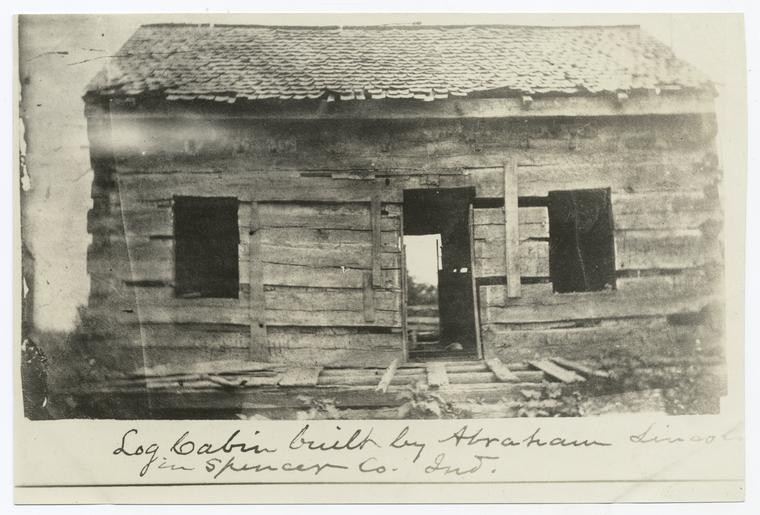 Log Cabin built by Abraham Lincol
in Spencer Co. Ind.